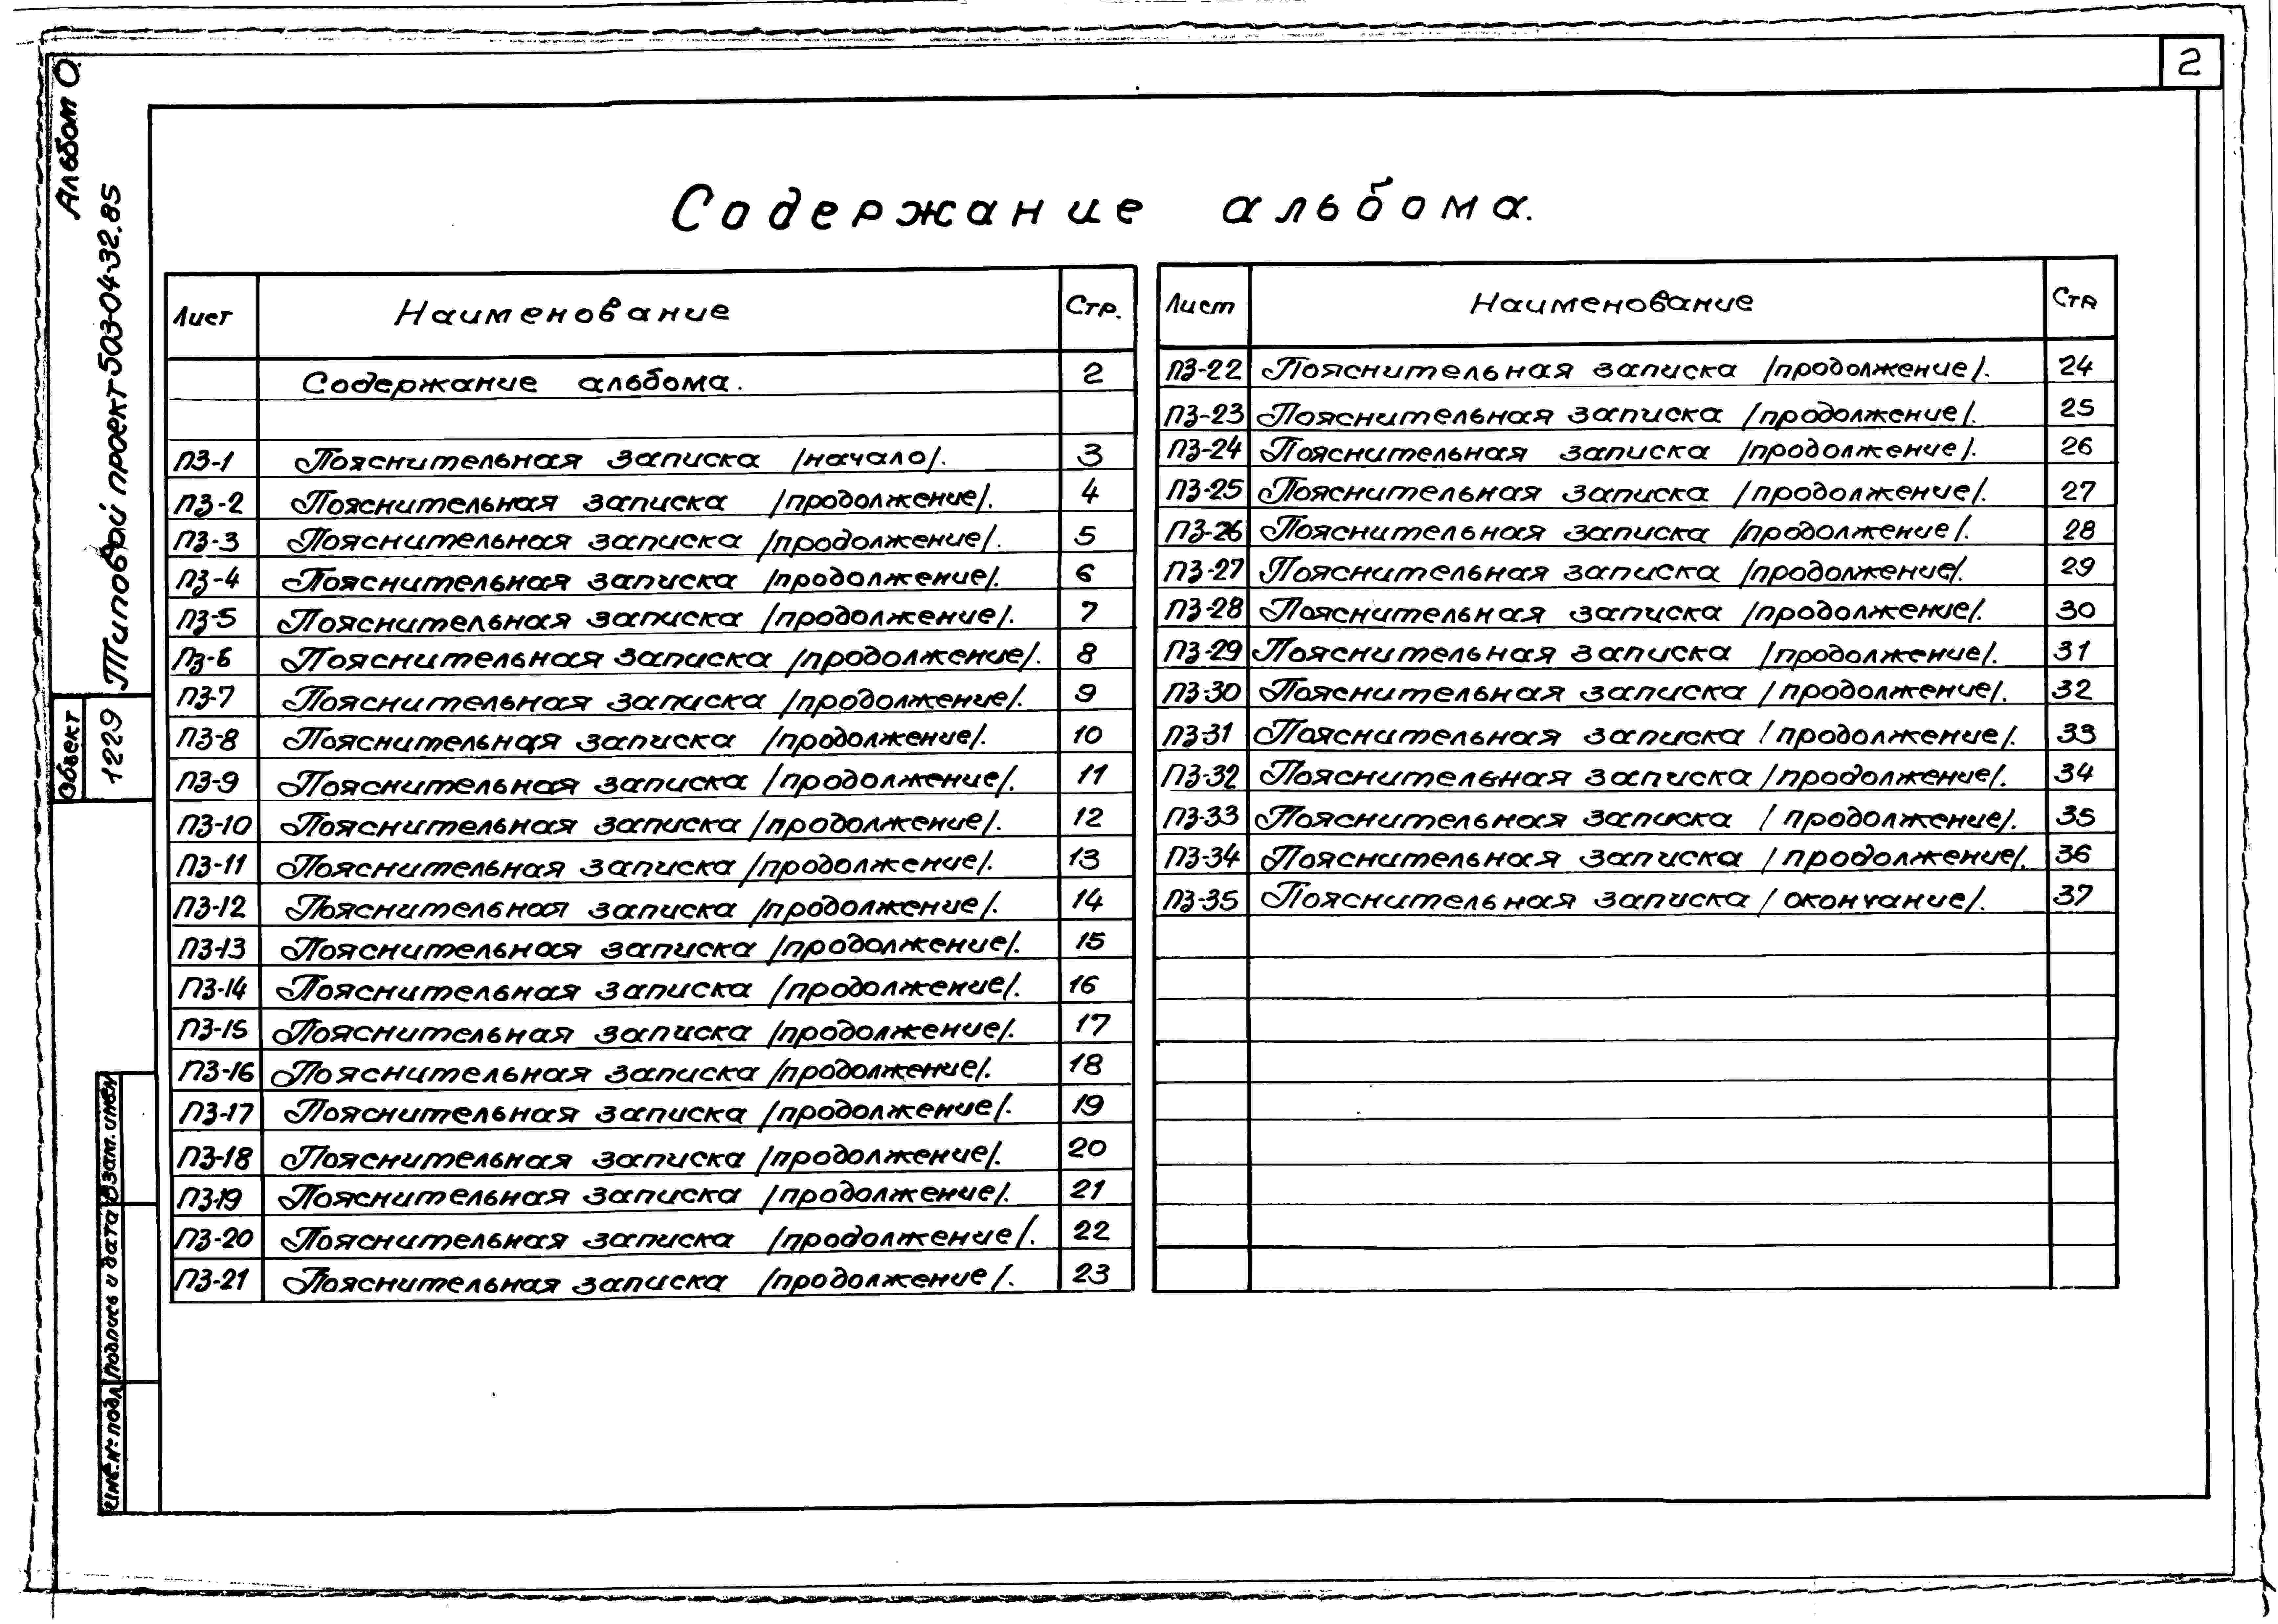 2
Альбом О.
Типовой проект 503-04-32.85
Объект
1229
Взам. инв.
Подпись и дата
Инв. № подл
Содержание альбома.
Лист Наименование Стр.
Содержание альбома. 2
ПЗ-1 Пояснительная записка /начало/. 3
ПЗ-2 Пояснительная записка /продолжение/. 4
ПЗ-3 Пояснительная записка /продолжение/. 5
ПЗ-4 Пояснительная записка /продолжение/. 6
ПЗ-5 Пояснительная записка /продолжение/. 7
ПЗ-6 Пояснительная записка /продолжение/. 8
ПЗ-7 Пояснительная записка /продолжение/. 9
ПЗ-8 Пояснительная записка /продолжение/. 10
ПЗ-9 Пояснительная записка /продолжение/. 11
ПЗ-10 Пояснительная записка /продолжение/. 12
ПЗ-11 Пояснительная записка /продолжение/. 13
ПЗ-12 Пояснительная записка /продолжение/. 14
ПЗ-13 Пояснительная записка /продолжение/. 15
ПЗ-14 Пояснительная записка /продолжение/. 16
ПЗ-15 Пояснительная записка /продолжение/. 17
ПЗ-16 Пояснительная записка /продолжение/. 18
ПЗ-17 Пояснительная записка /продолжение/. 19
ПЗ-18 Пояснительная записка /продолжение/. 20
ПЗ-19 Пояснительная записка /продолжение/. 21
ПЗ-20 Пояснительная записка /продолжение/. 22
ПЗ-21 Пояснительная записка /продолжение/. 23
Лист Наименование Стр
ПЗ-22 Пояснительная записка /продолжение/. 24
ПЗ-23 Пояснительная записка /продолжение/. 25
ПЗ-24 Пояснительная записка /продолжение/. 26
ПЗ-25 Пояснительная записка /продолжение/. 27
ПЗ-26 Пояснительная записка /продолжение/. 28
ПЗ-27 Пояснительная записка /продолжение/. 29
ПЗ-28 Пояснительная записка /продолжение/. 30
ПЗ-29 Пояснительная записка /продолжение/. 31
ПЗ-30 Пояснительная записка /продолжение/. 32
ПЗ-31 Пояснительная записка /продолжение/. 33
ПЗ-32 Пояснительная записка /продолжение/. 34
ПЗ-33 Пояснительная записка /продолжение/. 35
ПЗ-34 Пояснительная записка /продолжение/. 36
ПЗ-35 Пояснительная записка /окончание/. 37